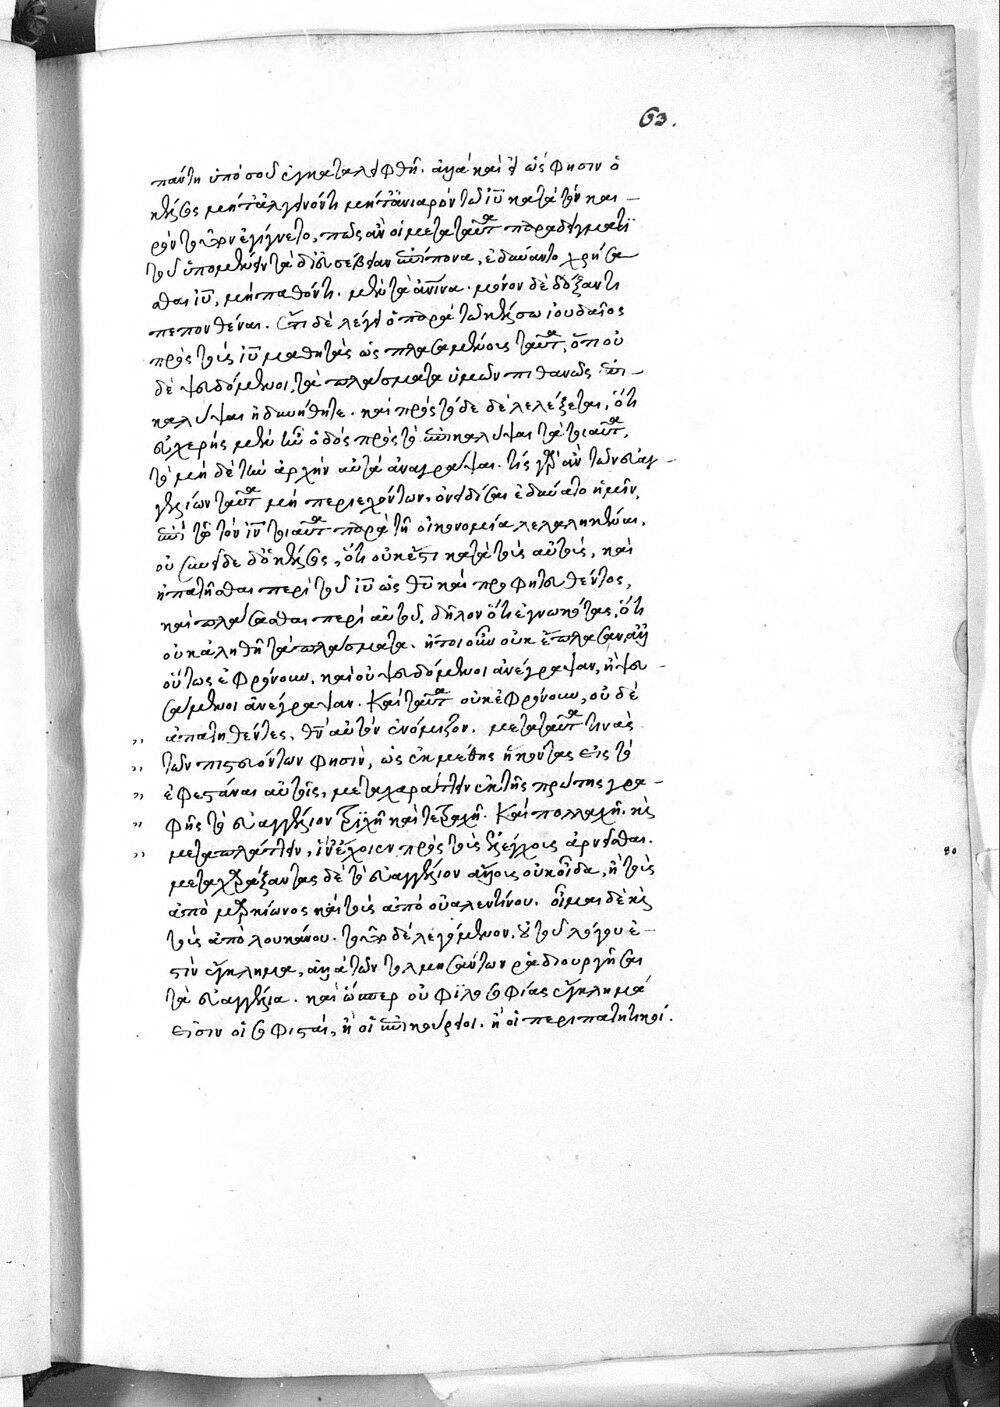 63.
πάντη ὑπὸ σοῦ ἐγκαταλειφθῆ. ἀλλὰ καὶ εἰ ὥς φησιν ὁ
κέλσος μήτ' ἀλγεινόν τι μήτ' ἀνιαρόν τῶ ἰῦ κατὰ τὸν και-
ρὸν τοῦτον ἐγίγνετο, πῶς ἂν οἱ μετὰ ταῦτα παραδείγματι
τοῦ ὑπομένειν τὰ δι' εὐσέβειαν ἐπίπονα, ἐδύναντο χρήσα
σθαι ἰῦ, μὴ παθόντι. μὲν τὰ ἀνινα. μόνον δὲ δόξαντι
πεπονθέναι. Ἔτι δὲ λέγει ὁ παρὰ τῶ κέλσω ἰουδαῖος
πρὸς τοὺς ἰῦ μαθητὰς ὡς πλασαμένους ταῦτα, ὅτι οὐ
δὲ ψευδόμενοι, τὰ πλάσματα ὑμῶν πιθανῶς ἐπι-
καλύψαι ἠδυνήθητε. καὶ πρὸς τόδε δὲ λελέξεται, ὅτι
εὐχερὴς μὲν ἦν ὁδὸς πρὸς τὸ ἐπικαλύψαι τὰ τοιαῦτα,
τὸ μηδὲ τὴν ἀρχὴν αὐτὰ ἀναγράψαι. τίς γὰρ ἂν τῶν εὐαγ-
γελίων ταῦτα μὴ περιεχόντων, ὀνειδίσαι ἐδύνατο ἡμῖν,
ἐπὶ τῶ τὸν ἰν τοιαῦτα παρὰ τῆ οἰκονομία λελαληκέναι.
οὐ συνεῖδε δ' ὁ κέλσος, ὅτι οὐκ ἔστι κατὰ τοὺς αὐτοὺς, καὶ
ἠπατῆσθαι περὶ τοῦ ἰῦ ὡς θῦ καὶ προφητευθέντος,
καὶ πλάσασθαι περὶ αὐτοῦ, δηλονότι ἐγνωκότας, ὅτι
οὐκ ἀληθῆ τὰ πλάσματα. ἤτοι οὖν οὐκ ἔπλασαν, ἀλλ'
οὕτως ἐφρόνουν, καὶ οὐ ψευδόμενοι ἀνέγραψαν, ἢ ψευ-
σάμενοι ἀνέγραψαν. καὶ ταῦτα οὐκ ἐφρόνουν, οὐδὲ
" ἀπατηθέντες, θν αὐτὸν ἐνόμιζον. μετὰ ταῦτα τινὰς
" τῶν πιστευόντων φησὶν, ὡς ἐκ μέθης ἥκοντας εἰς τὸ
" ἐφεστάναι αὐτοῖς, μεταχαράττειν ἐκ τῆς πρώτης γρα-
" φῆς τὸ εὐαγγέλιον τριχῆ καὶ τετραχῆ. καὶ πολλαχῆ. καὶ
" μεταπλάττειν, ἵν' ἔχοιεν πρὸς τοὺς ἐλέγχους ἀρνεῖσθαι.
μεταχαράξαντας δὲ τὸ εὐαγγέλιον ἄλλους οὐκ οἶδα, ἢ τοὺς
ἀπὸ μαρκίωνος καὶ τοὺς ἀπὸ οὐαλεντίνου. οἶμαι δὲ καὶ
τοὺς ἀπὸ λουκάνου. τοῦτο δὲ λεγόμενον, οὐ τοῦ λόγου ἐ-
στὶν ἔγκλημα, ἀλλὰ τῶν τολμησάντων ῥαδιουργῆσαι
τὰ εὐαγγέλια. καὶ ὥσπερ οὐ φιλοσοφίας ἔγκλημά
εἰσιν οἱ σοφισταί, ἢ οἱ ἐπικούρειοι. ἢ οἱ περιπατητικοί.